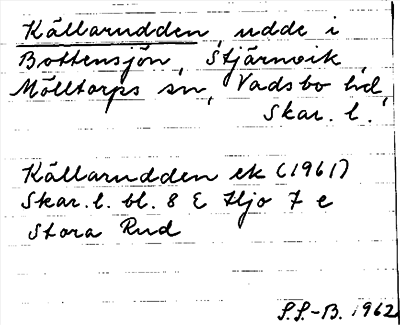 Källarudden, udde i
Bottensjön, Stjärnvik,
Mölltorps sn, Vadsbo hd,
Skar. l.
Källarudden ek (1961)
Skar. l. bl. 8 E Hjo 7 e
Stora Rud
S.S.-B. 1962